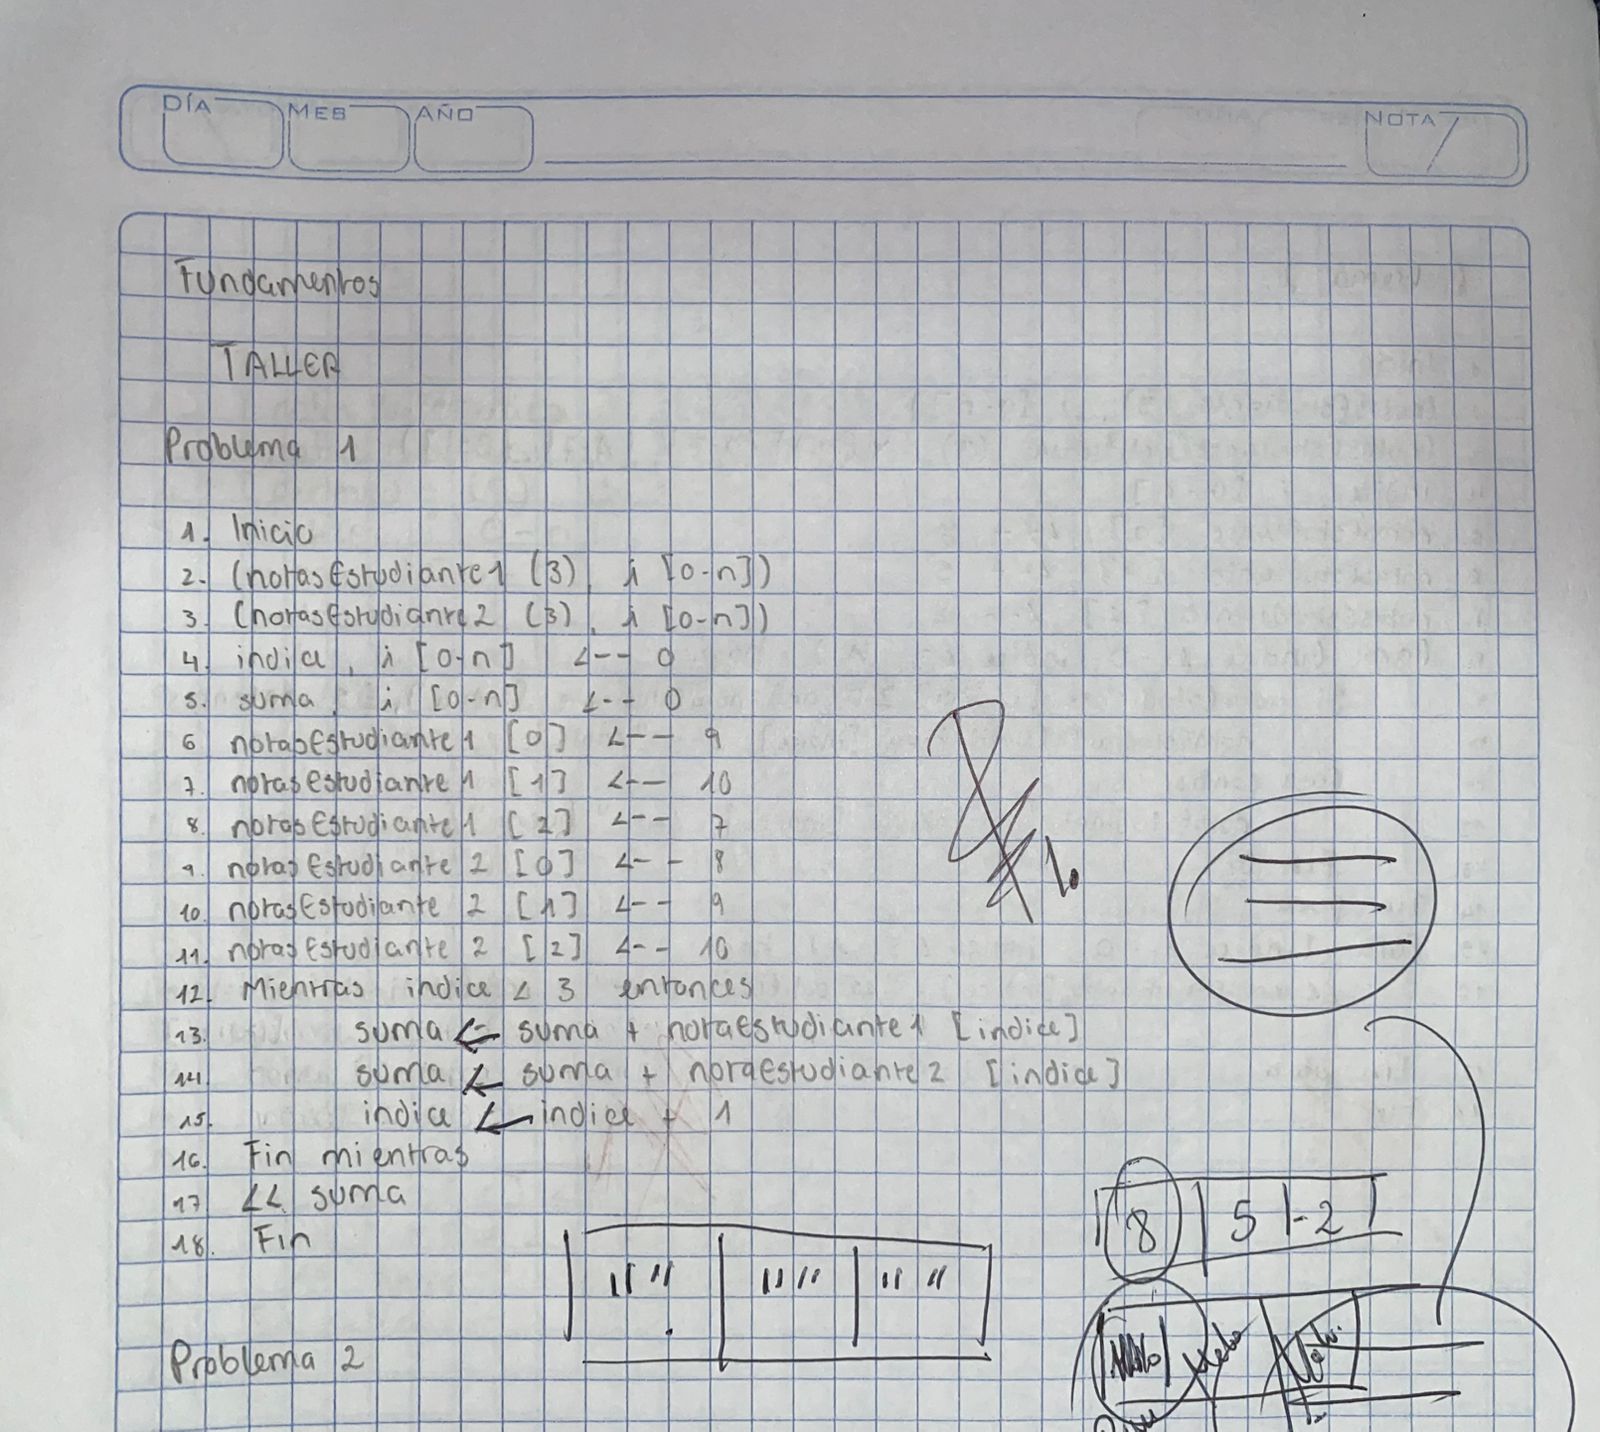 DÍA MES AÑO NOTA
Fundamentos
TALLER
Problema 1
1. Inicio
2. (notasEstudiante1 (3), i [0-n])
3. (notasEstudiante2 (3), i [0-n])
4. indice, i [0-n] <-- 0
5. suma, i [0-n] <-- 0
6 notasEstudiante1 [0] <-- 9
7. notasEstudiante1 [1] <-- 10
8. notasEstudiante1 [2] <-- 7
9. notasEstudiante 2 [0] <-- 8
10. notasEstudiante 2 [1] <-- 9
11. notasEstudiante 2 [2] <-- 10
12. Mientras indice < 3 entonces
13. suma <- suma + notaEstudiante1 [indice]
14. suma <- suma + notaEstudiante2 [indice]
15. indice <- indice + 1
16. Fin mientras
17 << suma
18. Fin
8 5 -2
"" "" ""
Problema 2